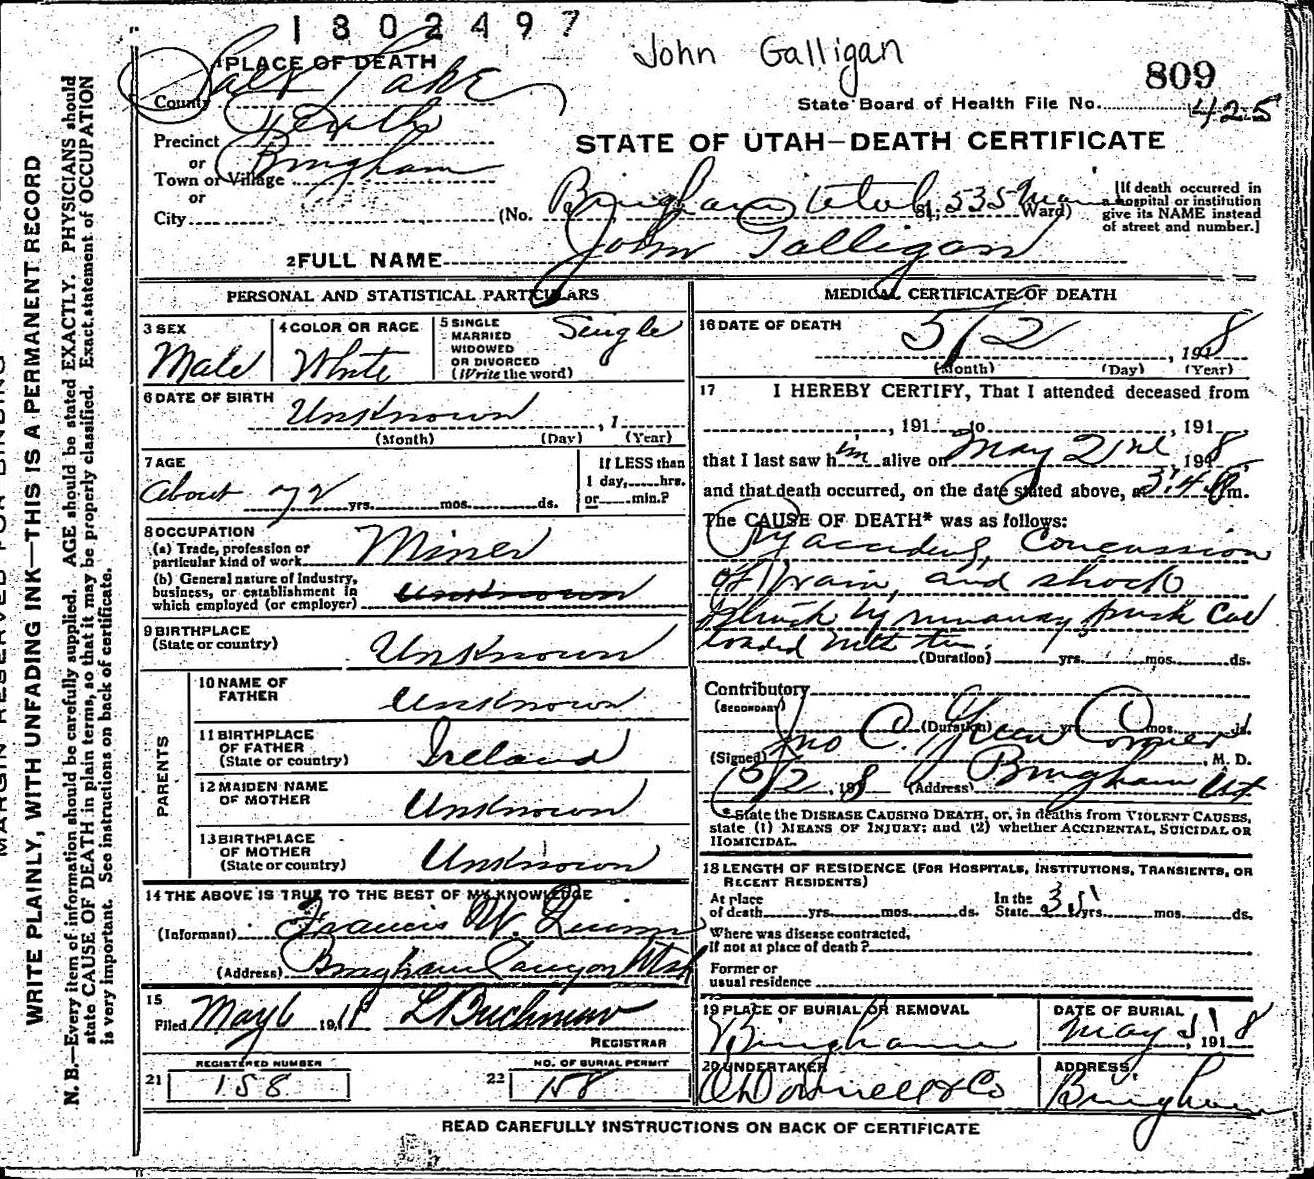 1802497
John Galligan
809
PLACE OF DEATH
State Board of Health File No. 425
County Salt Lake
Precinct
STATE OF UTAH—DEATH CERTIFICATE
or
Town or Village Bingham
or
City
(No. Bingham Utah St; 535 Main Ward)
[If death occurred in
a hospital or institution
give its NAME instead
of street and number.]
2 FULL NAME John Galligan
PERSONAL AND STATISTICAL PARTICULARS
3 SEX
Male
4 COLOR OR RACE
White
5 SINGLE
MARRIED
WIDOWED
OR DIVORCED
(Write the word)
Single
6 DATE OF BIRTH
Unknown , 1
(Month) (Day) (Year)
7 AGE
About 72 yrs. mos. ds.
If LESS than
1 day, hrs.
or min.?
8 OCCUPATION
(a) Trade, profession or
particular kind of work Miner
(b) General nature of Industry,
business, or establishment in
which employed (or employer) Unknown
9 BIRTHPLACE
(State or country) Unknown
PARENTS
10 NAME OF
FATHER Unknown
11 BIRTHPLACE
OF FATHER
(State or country) Ireland
12 MAIDEN NAME
OF MOTHER Unknown
13 BIRTHPLACE
OF MOTHER
(State or country) Unknown
14 THE ABOVE IS TRUE TO THE BEST OF MY KNOWLEDGE
(Informant) Francis W. Quinn
(Address) Bingham Canyon Utah
15
Filed May 6 1918 L Buchman
REGISTRAR
REGISTERED NUMBER
21 158
NO. OF BURIAL PERMIT
22 158
MEDICAL CERTIFICATE OF DEATH
16 DATE OF DEATH
5/2 , 1918
(Month) (Day) (Year)
17 I HEREBY CERTIFY, That I attended deceased from
, 191 to , 191
that I last saw him alive on May 2nd 1918
and that death occurred, on the date stated above, at 3:40 m.
The CAUSE OF DEATH* was as follows:
By accident, Concussion
of brain, and shock
struck by runaway push Car
loaded with
(Duration) yrs. mos. ds.
Contributory
(SECONDARY)
(Duration) yrs. mos. ds.
(Signed) Jno C. Green Coroner M. D.
5/2 1918 (Address) Bingham Ut
*State the DISEASE CAUSING DEATH, or, in deaths from VIOLENT CAUSES,
state (1) MEANS OF INJURY; and (2) whether ACCIDENTAL, SUICIDAL OR
HOMICIDAL.
18 LENGTH OF RESIDENCE (FOR HOSPITALS, INSTITUTIONS, TRANSIENTS, OR
RECENT RESIDENTS)
At place
of death yrs. mos. ds.
In the
State 35 yrs. mos. ds.
Where was disease contracted,
if not at place of death?
Former or
usual residence
19 PLACE OF BURIAL OR REMOVAL
Bingham
DATE OF BURIAL
May 5 1918
20 UNDERTAKER
O'Donnell & Co
ADDRESS
Bingham
READ CAREFULLY INSTRUCTIONS ON BACK OF CERTIFICATE
MARGIN RESERVED FOR BINDING
WRITE PLAINLY, WITH UNFADING INK—THIS IS A PERMANENT RECORD
N. B.—Every item of information should be carefully supplied. AGE should be stated EXACTLY. PHYSICIANS should
state CAUSE OF DEATH in plain terms, so that it may be properly classified. Exact statement of OCCUPATION
is very important. See instructions on back of certificate.